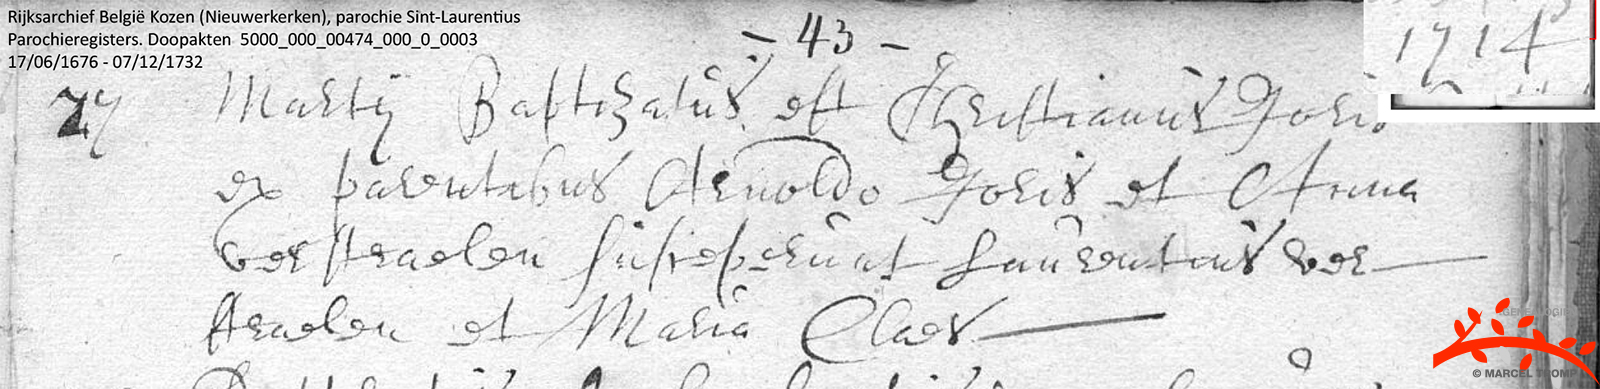 Rijksarchief België Kozen (Nieuwerkerken), parochie Sint-Laurentius
Parochieregisters. Doopakten 5000_000_00474_000_0_0003
17/06/1676 - 07/12/1732
- 43 -
1714
27 Martij Baptizatus est Christianus Joris
ex parentibus Arnoldo Joris et Anna
verstraelen susceperunt Laurentius ver
straelen et Maria Claes
© MARCEL TROMP